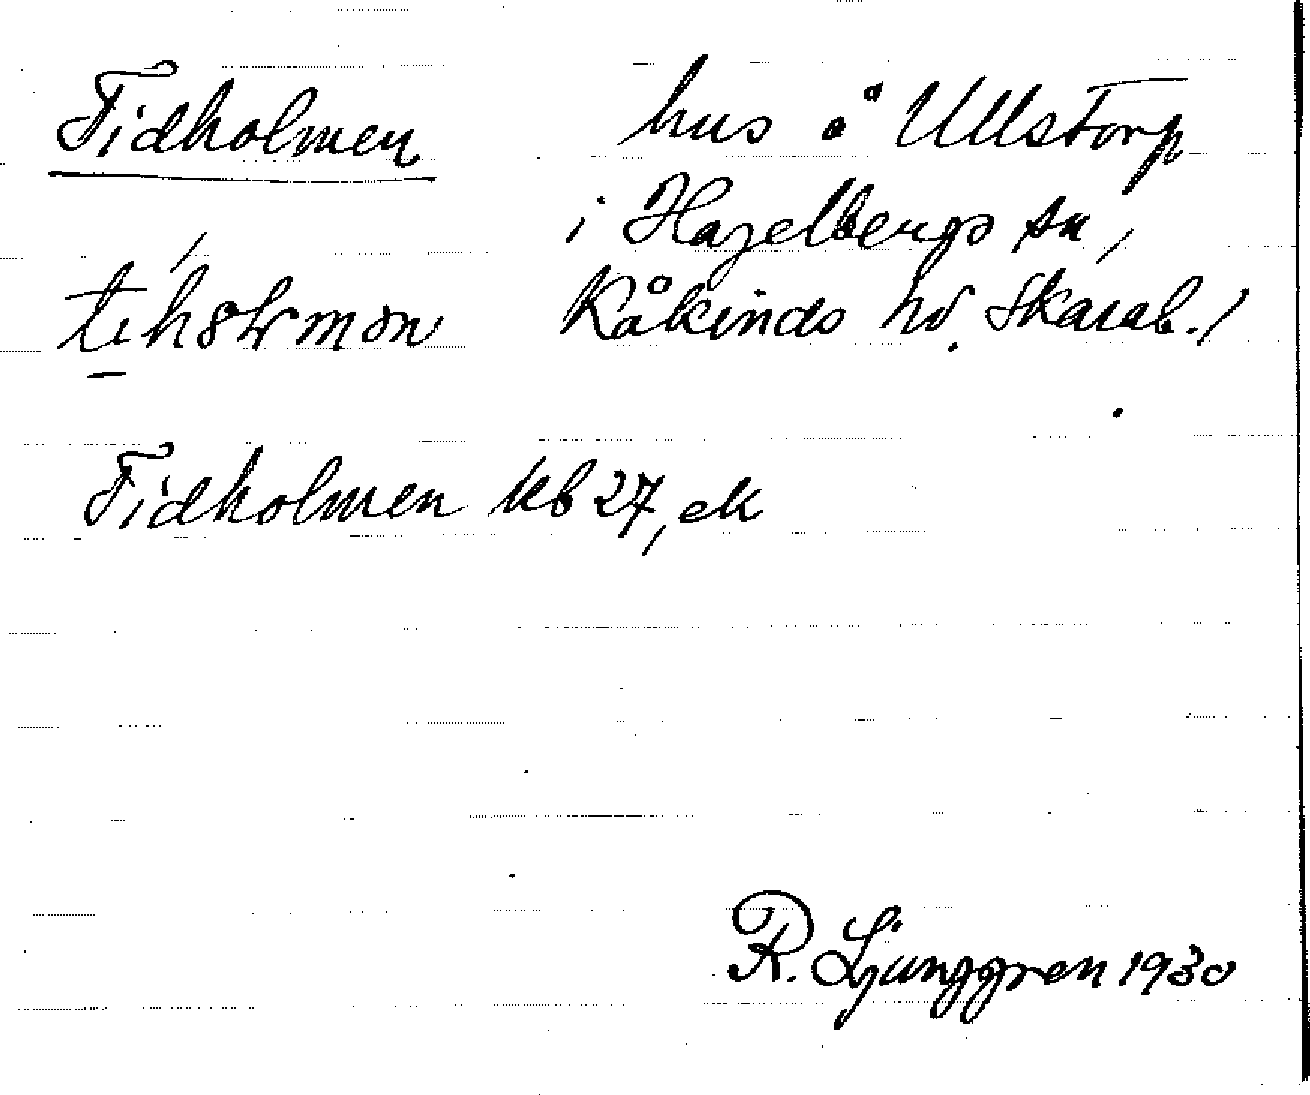 Tidholmen hus å Ullstorp
i Hagelbergs sn,
Kåkinds hd. Skarab.
Tidholmen kb 27, ek
R. Ljunggren 1930